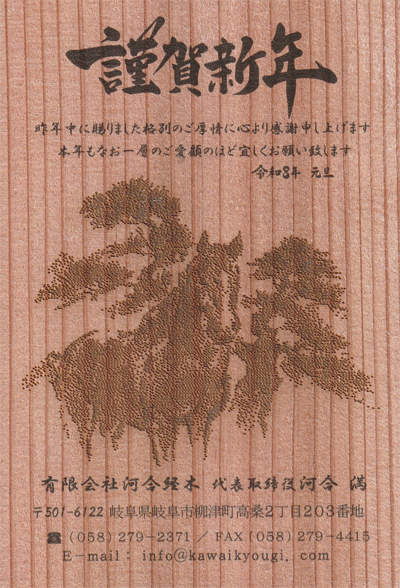 謹賀新年
昨年中に賜りました格別のご厚情に心より感謝申し上げます
本年もなお一層のご愛顧のほど宜しくお願い致します
令和8年 元旦
有限会社河合経木 代表取締役河合 満
〒501-6122 岐阜県岐阜市柳津町高桑2丁目203番地
☎ (058) 279-2371 / FAX (058) 279-4415
E-mail: info@kawaikyougi.com